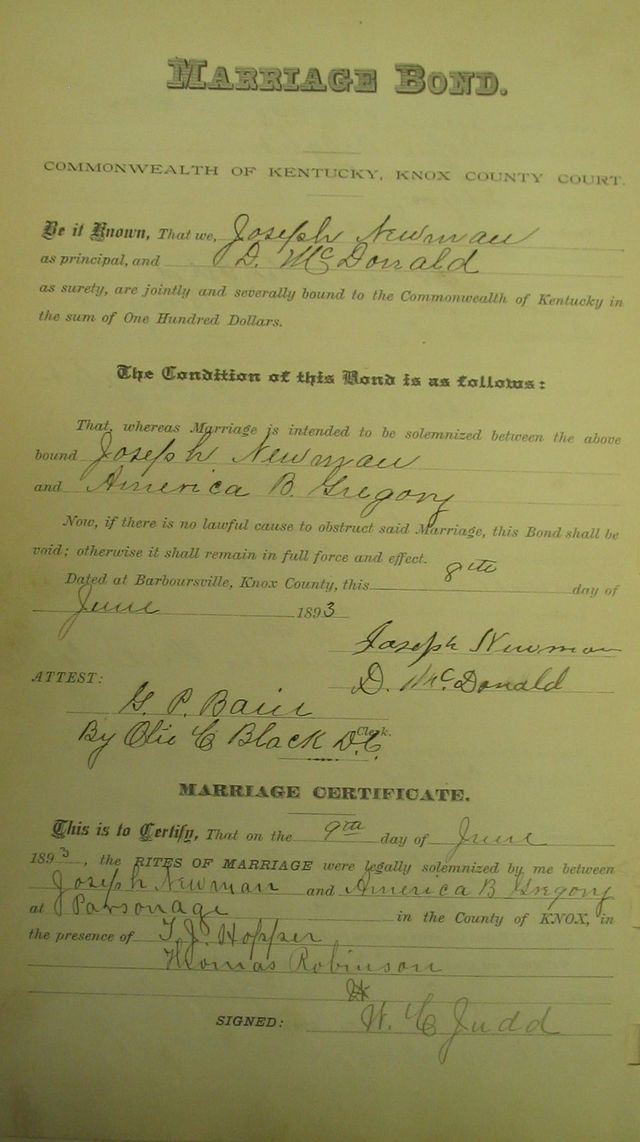 MARRIAGE BOND.
COMMONWEALTH OF KENTUCKY, KNOX COUNTY COURT.
Be it Known, That we, Joseph Newman
as principal, and D. McDonald
as surety, are jointly and severally bound to the Commonwealth of Kentucky in
the sum of One Hundred Dollars.
The Condition of this Bond is as follows:
That, whereas Marriage is intended to be solemnized between the above
bound Joseph Newman
and America B. Gregory
Now, if there is no lawful cause to obstruct said Marriage, this Bond shall be
void; otherwise it shall remain in full force and effect.
Dated at Barboursville, Knox County, this 8th day of
June 1893
Joseph Newman
ATTEST: D. McDonald
G. P. Bain
Clerk.
By Olie C Black D.C.
MARRIAGE CERTIFICATE.
This is to Certify, That on the 9th day of June
1893, the RITES OF MARRIAGE were legally solemnized by me between
Joseph Newman and America B Gregory
at Parsonage in the County of KNOX, in
the presence of T. J. Hopper
Thomas Robinson
SIGNED: W. C Judd